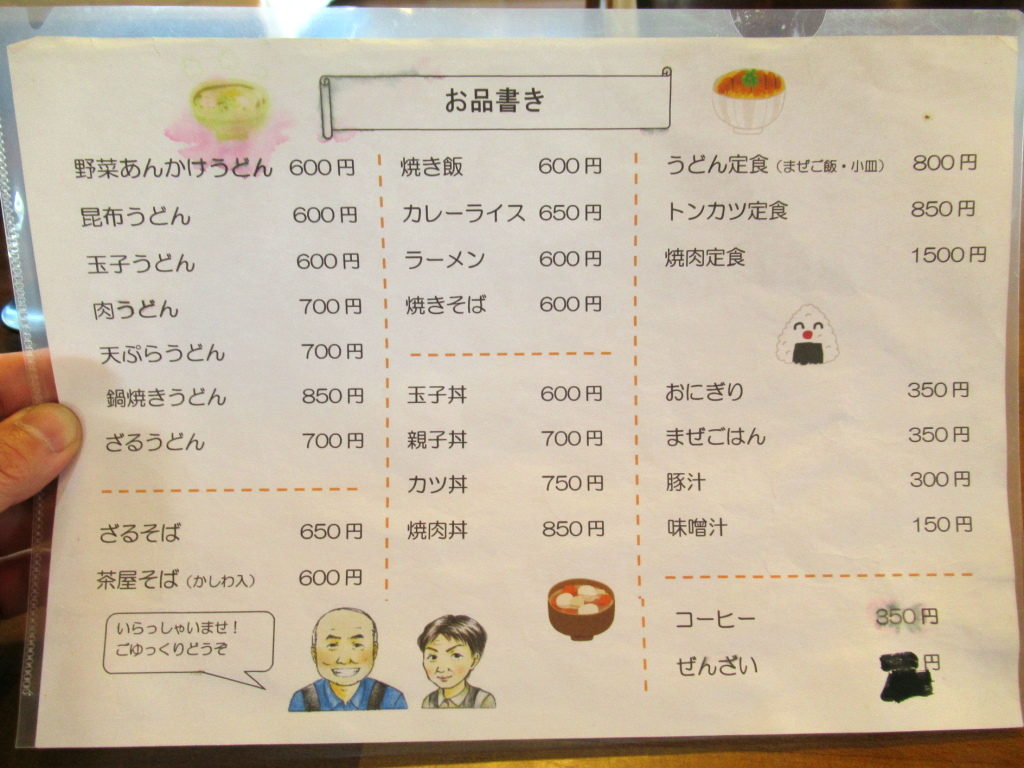 お品書き
野菜あんかけうどん 600円
昆布うどん 600円
玉子うどん 600円
肉うどん 700円
天ぷらうどん 700円
鍋焼きうどん 850円
ざるうどん 700円
ざるそば 650円
茶屋そば(かしわ入) 600円
いらっしゃいませ!
ごゆっくりどうぞ
焼き飯 600円
カレーライス 650円
ラーメン 600円
焼きそば 600円
玉子丼 600円
親子丼 700円
カツ丼 750円
焼肉丼 850円
うどん定食(まぜご飯・小皿) 800円
トンカツ定食 850円
焼肉定食 1500円
おにぎり 350円
まぜごはん 350円
豚汁 300円
味噌汁 150円
コーヒー 350円
ぜんざい 円